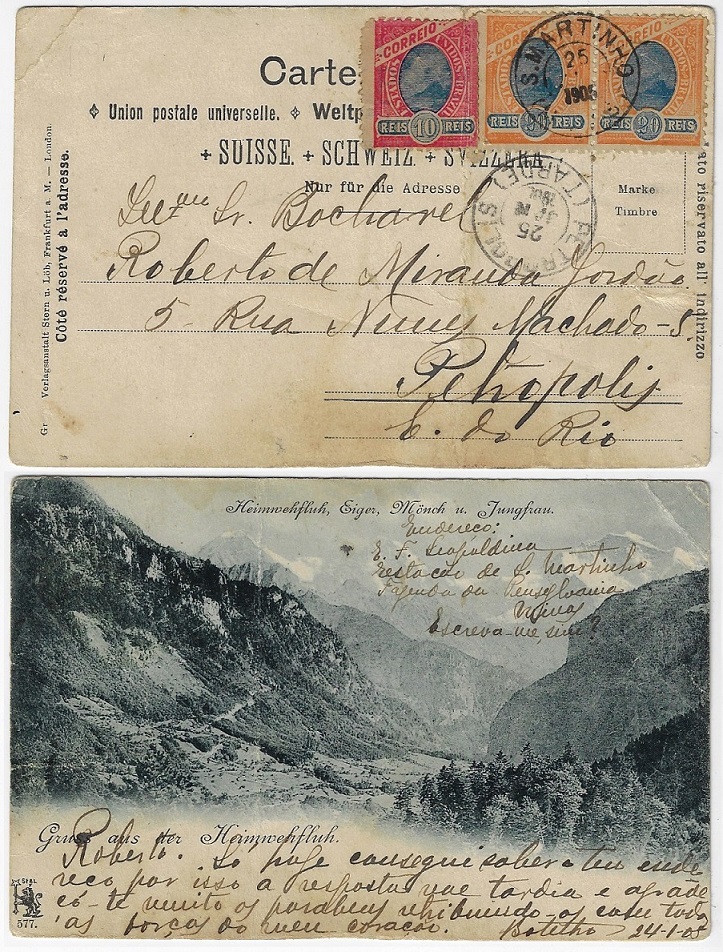 Carte
Union postale universelle. Weltp
+ SUISSE. + SCHWEIZ. + SVIZZERA
Nur für die Adresse
CORREIO
ESTADOS
BRAZIL
REIS 10 REIS
CORREIO
REIS 20 REIS
REIS 20 REIS
S. MARTINHO
25
1905
PETROPOLIS
(TARDE)
25
Marke
Timbre
ato riservato all' indirizzo
Côté réservé à l'adresse.
Verlagsanstalt Stern u. Löb, Frankfurt a. M. — London.
Sr.
Roberto de Miranda Jordão
5- Rua Nunes Machado-5
Petropolis
E. do Rio
Heimwehfluh, Eiger, Mönch u. Jungfrau.
Endereço:
E. F. Leopoldina
Estação de S. Martinho
Fazenda da Pensylvania
Minas
Escreva-me, sim?
Gruss aus der Heimwehfluh.
Roberto. So hoje consegui saber o teu ende
reço por isso a resposta vae tardia e agrade
ço-te muito os parabens retribuindo-os com toda
as forças do meu coração. Botelho 24-1-05
577.